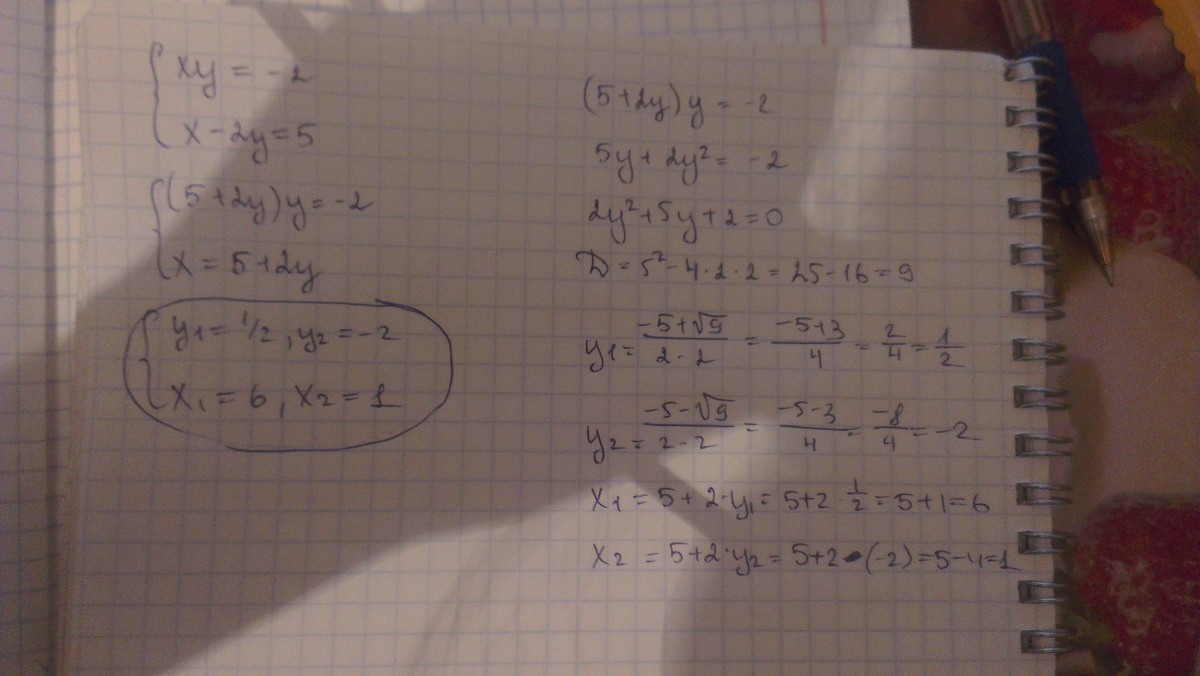 xy = -2
x - 2y = 5
(5 + 2y) y = -2
x = 5 + 2y
y₁ = 1/2, y₂ = -2
x₁ = 6, x₂ = 1
(5 + 2y) y = -2
5y + 2y² = -2
2y² + 5y + 2 = 0
D = 5² - 4 · 2 · 2 = 25 - 16 = 9
y₁ = (-5 + √9)/(2 · 2) = (-5 + 3)/4 = 2/4 = 1/2
y₂ = (-5 - √9)/(2 · 2) = (-5 - 3)/4 = -8/4 = -2
x₁ = 5 + 2 · y₁ = 5 + 2 · 1/2 = 5 + 1 = 6
x₂ = 5 + 2 · y₂ = 5 + 2 · (-2) = 5 - 4 = 1